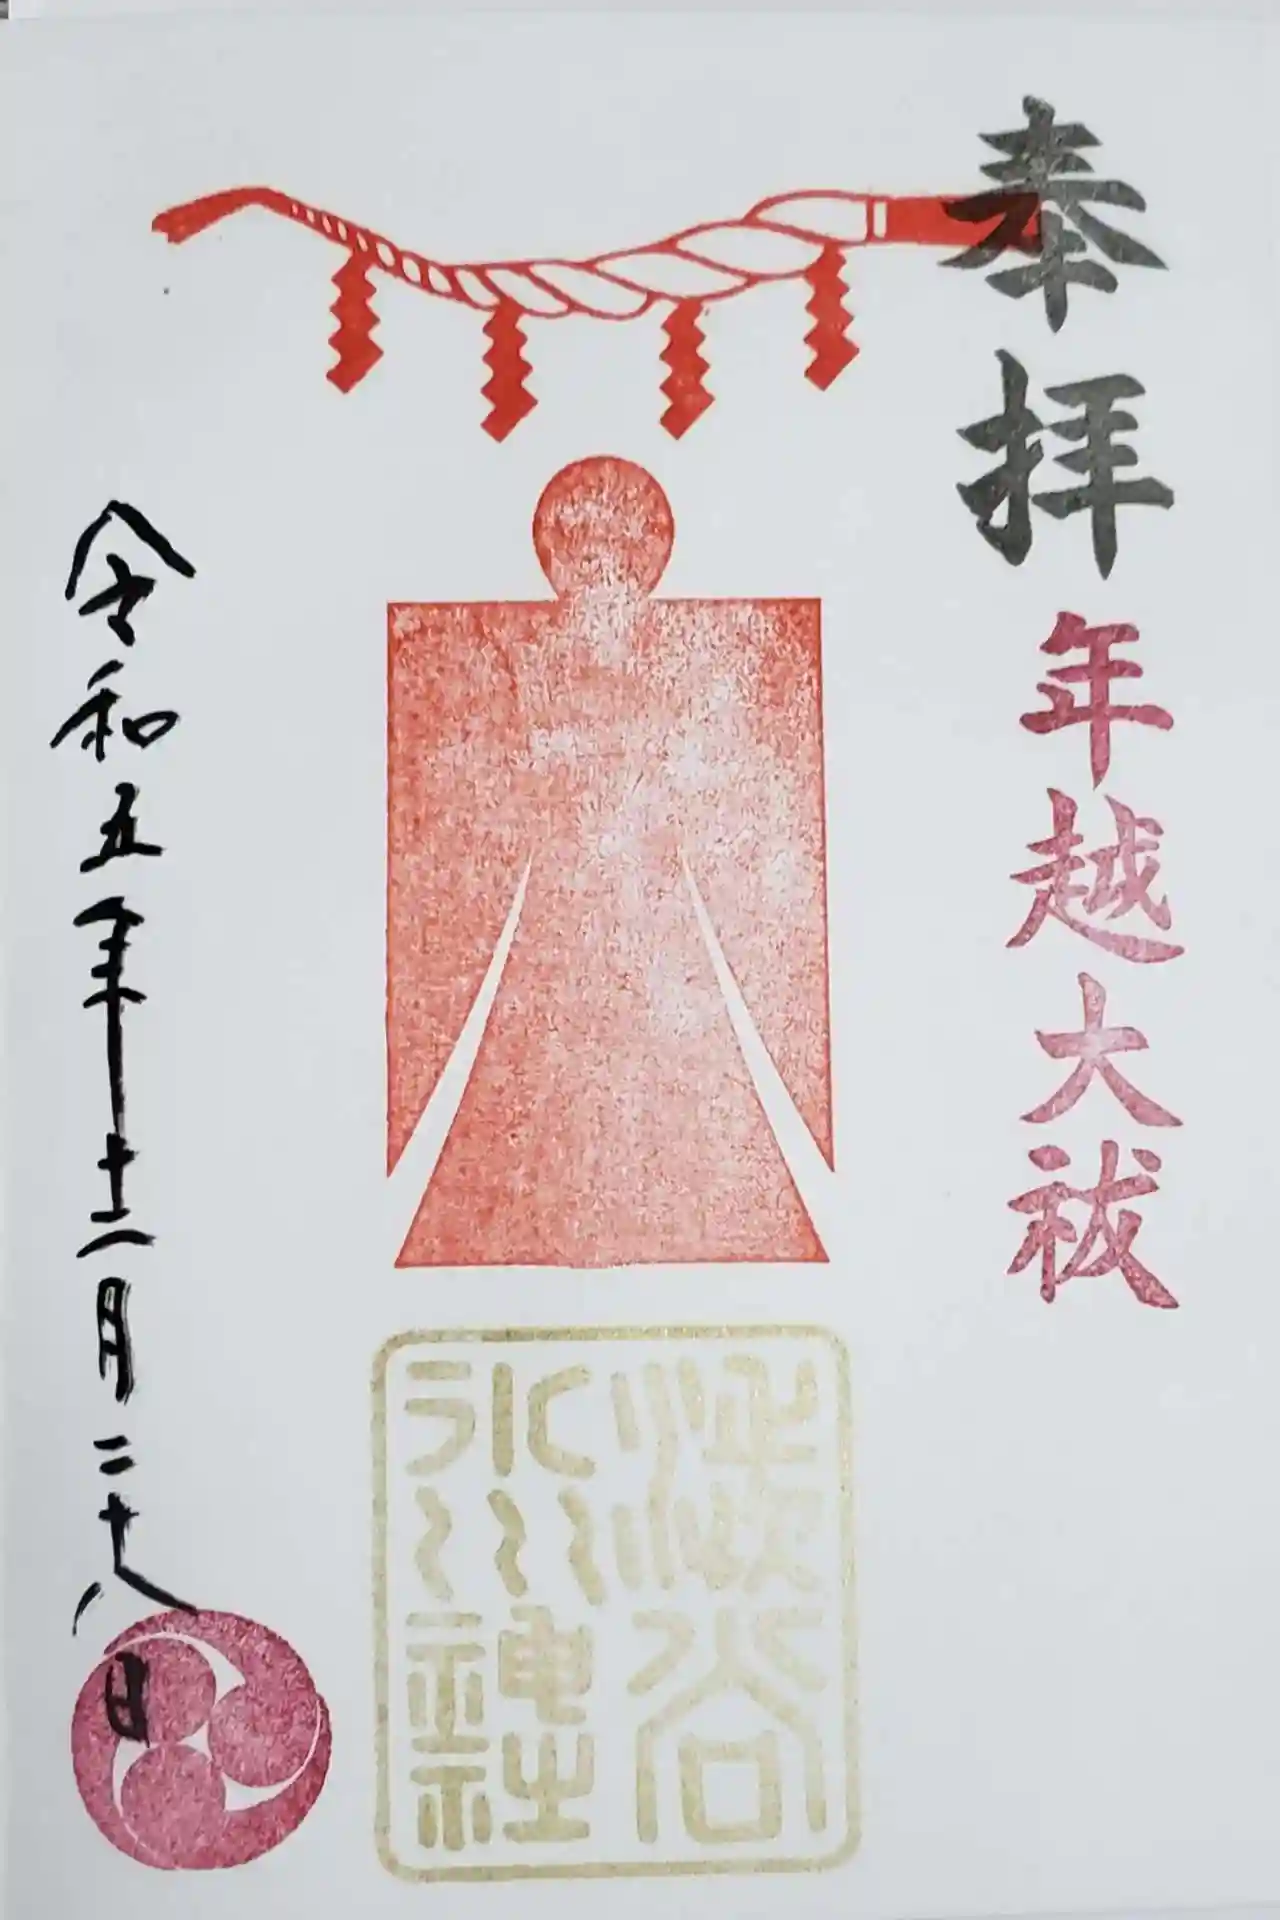 奉拝
年越大祓
渋谷
氷川神社
令和五年十二月二十八日